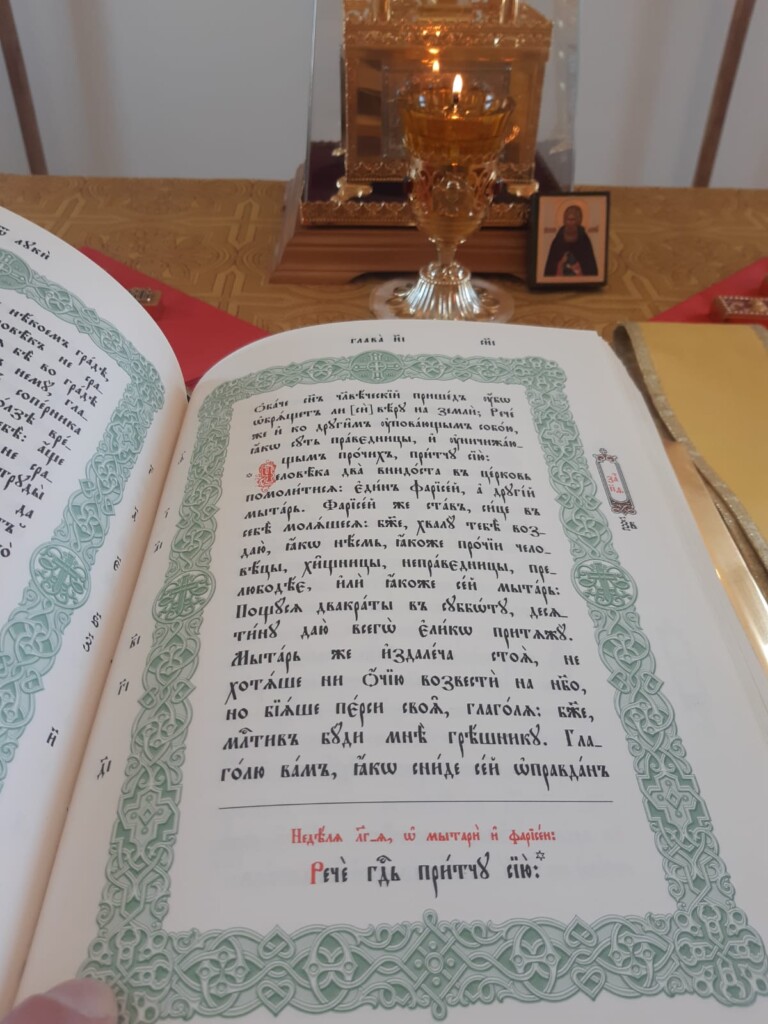 ѿ лꙋки
нѣкоемъ гра́дѣ,
не сра‑
бѣ во гра́дѣ
нему̀, гла‑
соперника
а́ще
не сра‑
трꙋды̀
да
глава̀ и҃і
Ѻ҆ба́че сн҃ъ чл҃вѣ́ческїй прише́дъ ᲂу҆́бѡ
ѡ҆брѧ́щетъ ли [сѝ] вѣ́рꙋ на землѝ; Рече́
же и҆ ко дрꙋги̑мъ ᲂу҆пова́ющымъ собо́ю,
ꙗ҆́кѡ сꙋ́ть пра́вєдницы, и҆ ᲂу҆ничижа́ю‑
щымъ про́чихъ, при́тчꙋ сїю̀:
Человѣ̑ка два̀ внидо́ста въ це́рковь
помоли́тисѧ: є҆ди́нъ фарїсе́й, а҆ дрꙋгі́й
мыта́рь. Фарїсе́й же ста́въ, си́це въ
себѣ̀ молѧ́шесѧ: бж҃е, хвалꙋ̀ тебѣ̀ воз‑
даю̀, ꙗ҆́кѡ нѣ́смь, ꙗ҆́коже про́чїи чело‑
вѣ́цы, хи̑щницы, непра́вєдницы, пре‑
любодѣ́є, и҆лѝ ꙗ҆́коже се́й мыта́рь:
Пощꙋ́сѧ двакра́ты въ сꙋббѡ́тꙋ, десѧ‑
ти́нꙋ даю̀ всегѡ̀ є҆ли́кѡ притѧжꙋ̀.
Мыта́рь же и҆здале́ча стоѧ̀, не
хотѧ́ше ни ѻ҆́чїю возвестѝ на нб҃о,
но бїѧ́ше пє́рси своѧ̑, глаго́лѧ: бж҃е,
млⷭ҇тивъ бꙋ́ди мнѣ̀ грѣ́шникꙋ. Гла‑
го́лю ва́мъ, ꙗ҆́кѡ сни́де се́й ѡ҆правда́нъ
Недѣ́лѧ л҃г‑ѧ, ѡ҆ мытарѝ и҆ фарїсе́и:
Речѐ гдⷭ҇ь при́тчꙋ сїю̀: